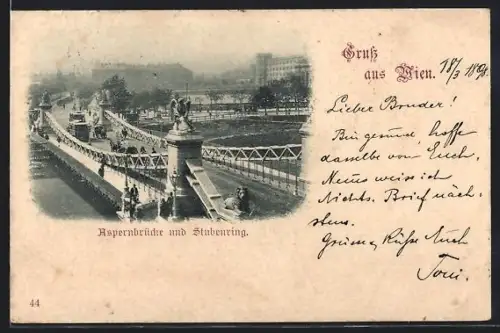 Gruß
aus Wien. 18/3 1898.
Lieber Bruder!
Bin gesund, hoffe
dasselbe von Euch.
Neues weiss ich
Nichts. Brief näch-
stens.
Grüsse, Küsse Euch
Toni.
Aspernbrücke und Stubenring.
44